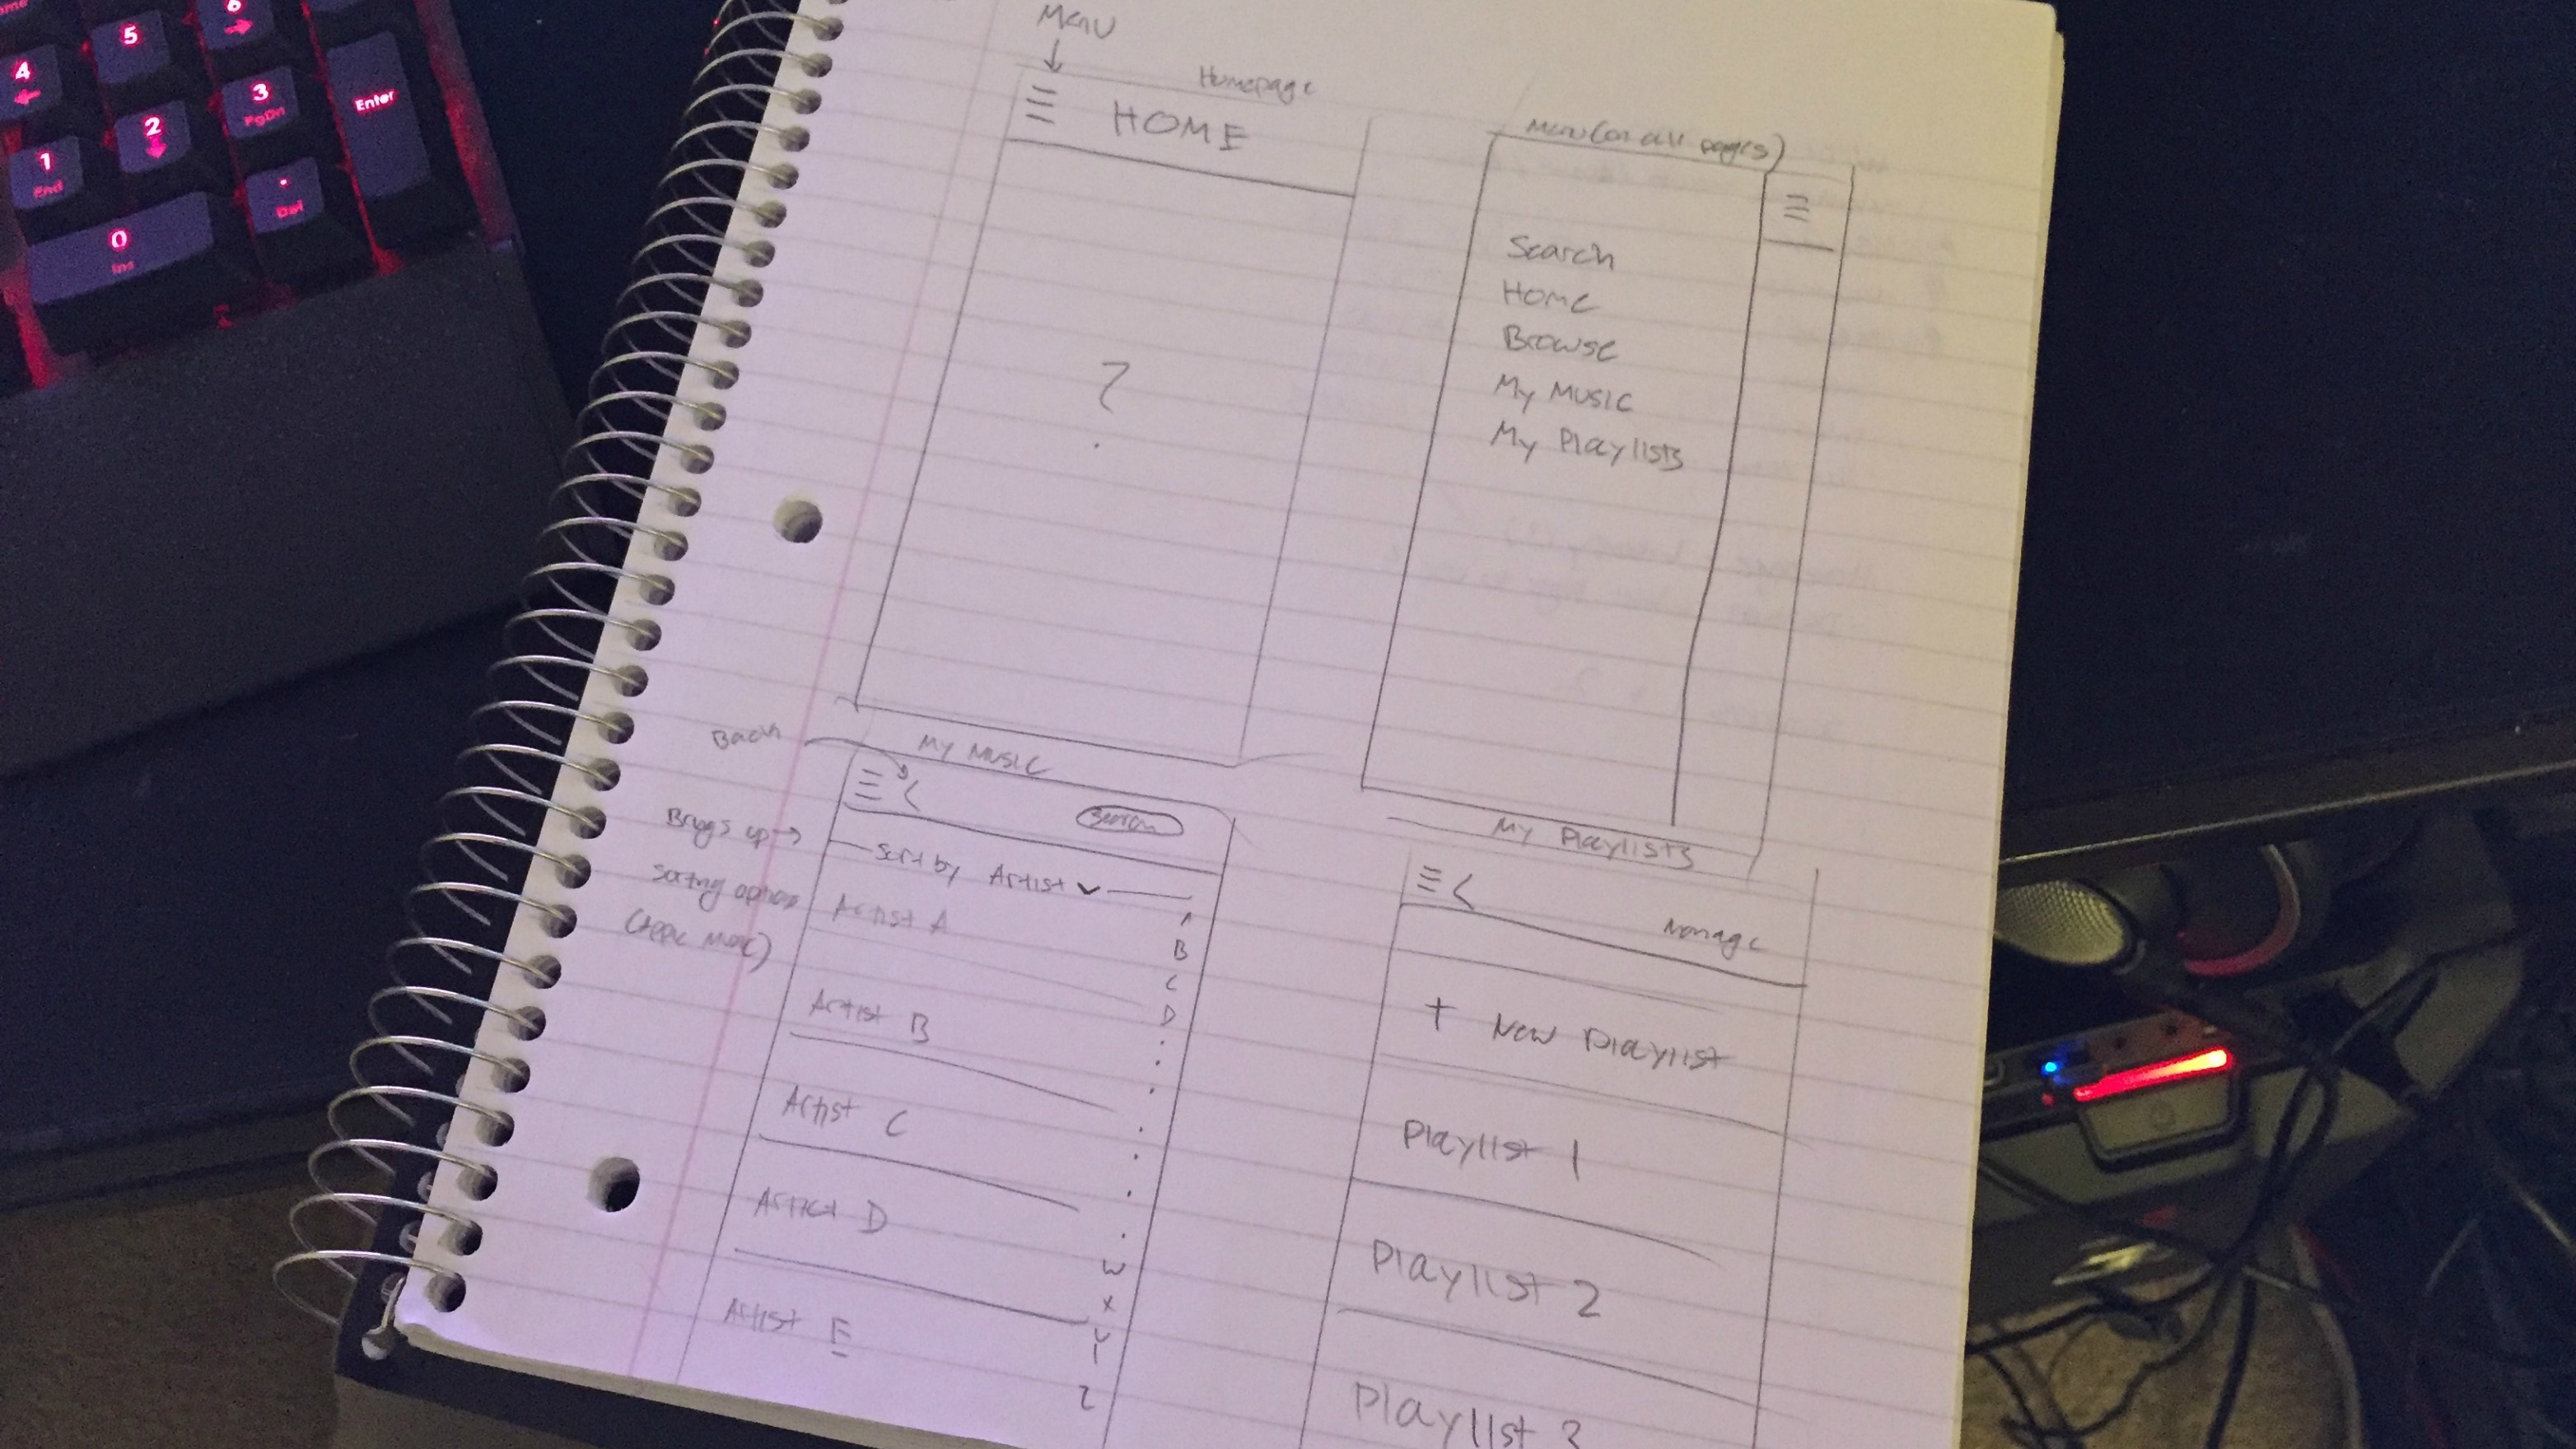 5
6
4
1
End
2
3
PgDn
Enter
0
Ins
.
Del
Menu
Homepage
HOME
?
Menu (on all pages)
Search
Home
Browse
My Music
My Playlists
My Music
Back
<
Search
Brings up
sorting options
Sort by Artist
A
B
C
D
W
X
Y
Z
Artist A
Artist B
Artist C
Artist D
Artist E
My Playlists
<
Manage
+ New Playlist
Playlist 1
Playlist 2
Playlist 3